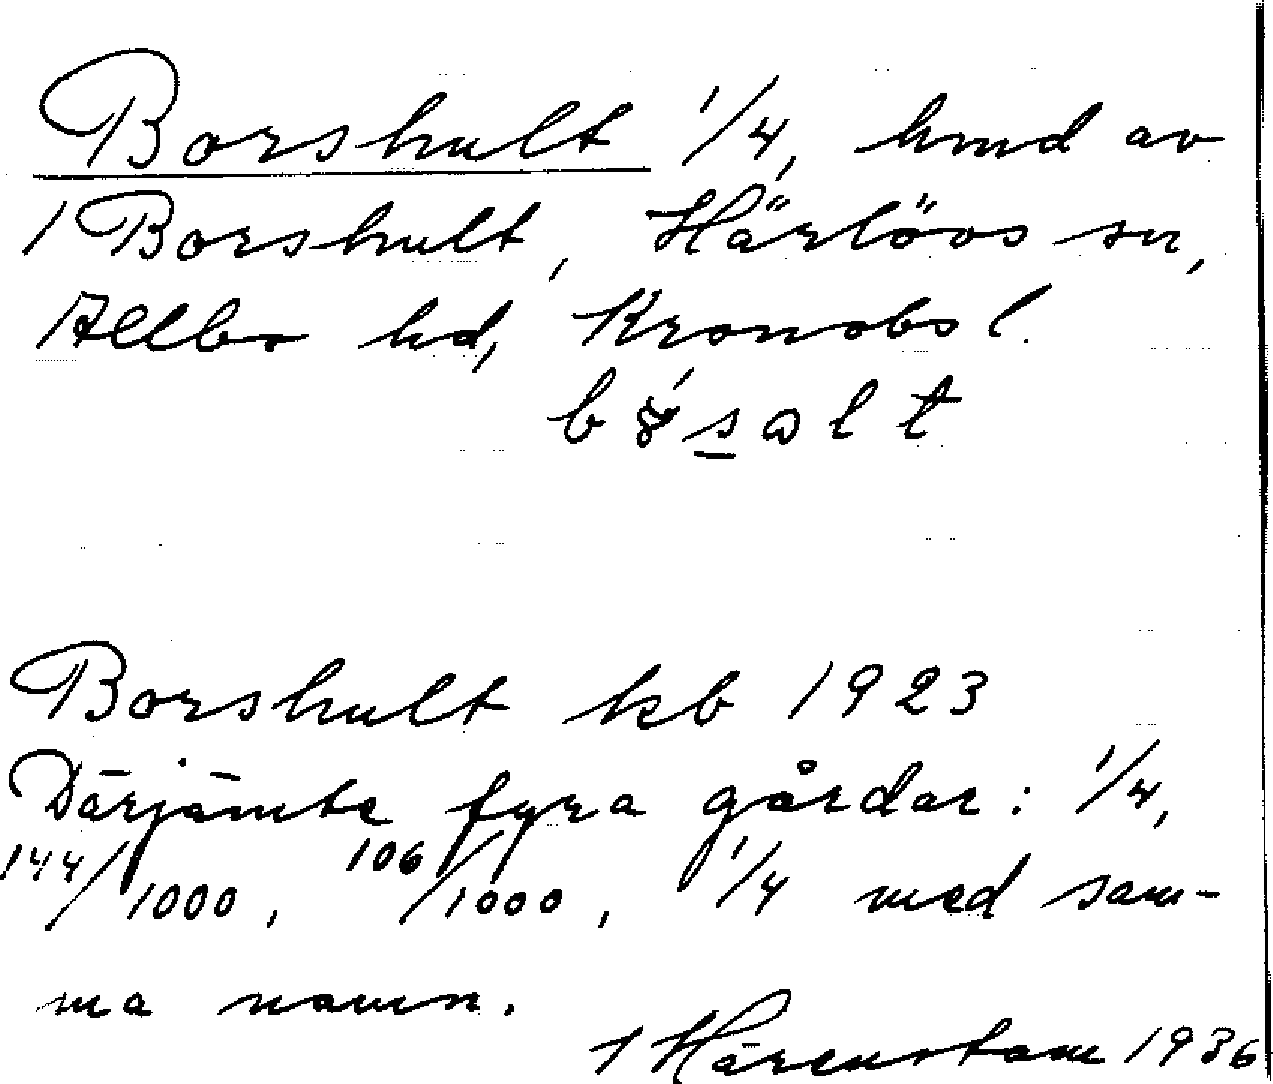 Borshult 1/4, hmd av
1 Borshult, Härlövs sn,
Allbo hd, Kronobs l.
Borshult kb 1923
Därjämte fyra gårdar: 1/4,
144/1000, 106/1000, 1/4 med sam-
ma namn.
J Härenstam 1936